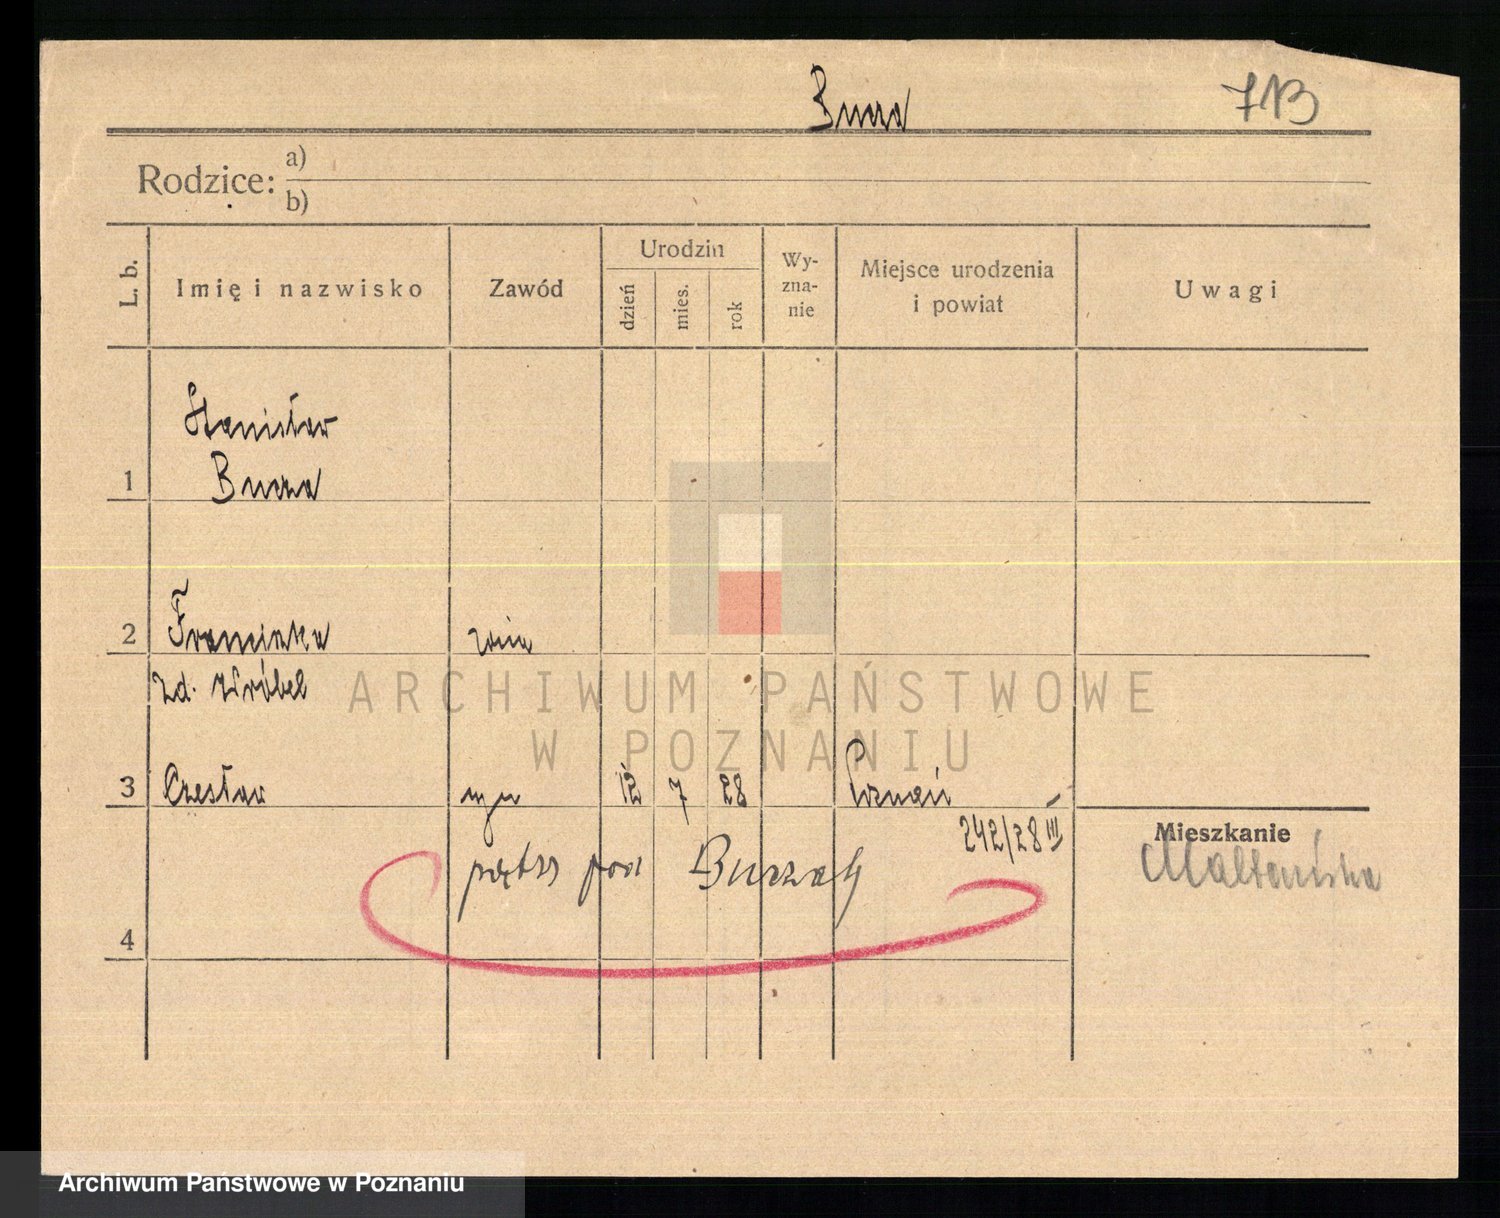 Burza
713
Rodzice: a)
b)
L. b.
Imię i nazwisko
Zawód
Urodzin
dzień
mies.
rok
Wy-
zna-
nie
Miejsce urodzenia
i powiat
Uwagi
Stanisław
1 Burza
2 Franciszka żona
zd. Wróbel
ARCHIWUM PAŃSTWOWE
W POZNANIU
3 Czesław syn 12 7 28 Poznań
242/28 III
Mieszkanie
patrz pod Burzały
4
Archiwum Państwowe w Poznaniu